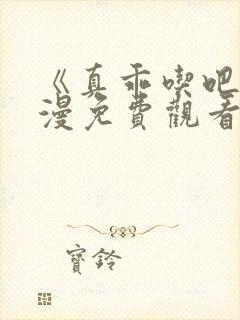 《真乖喫吧
漫免費觀看
寶鈴